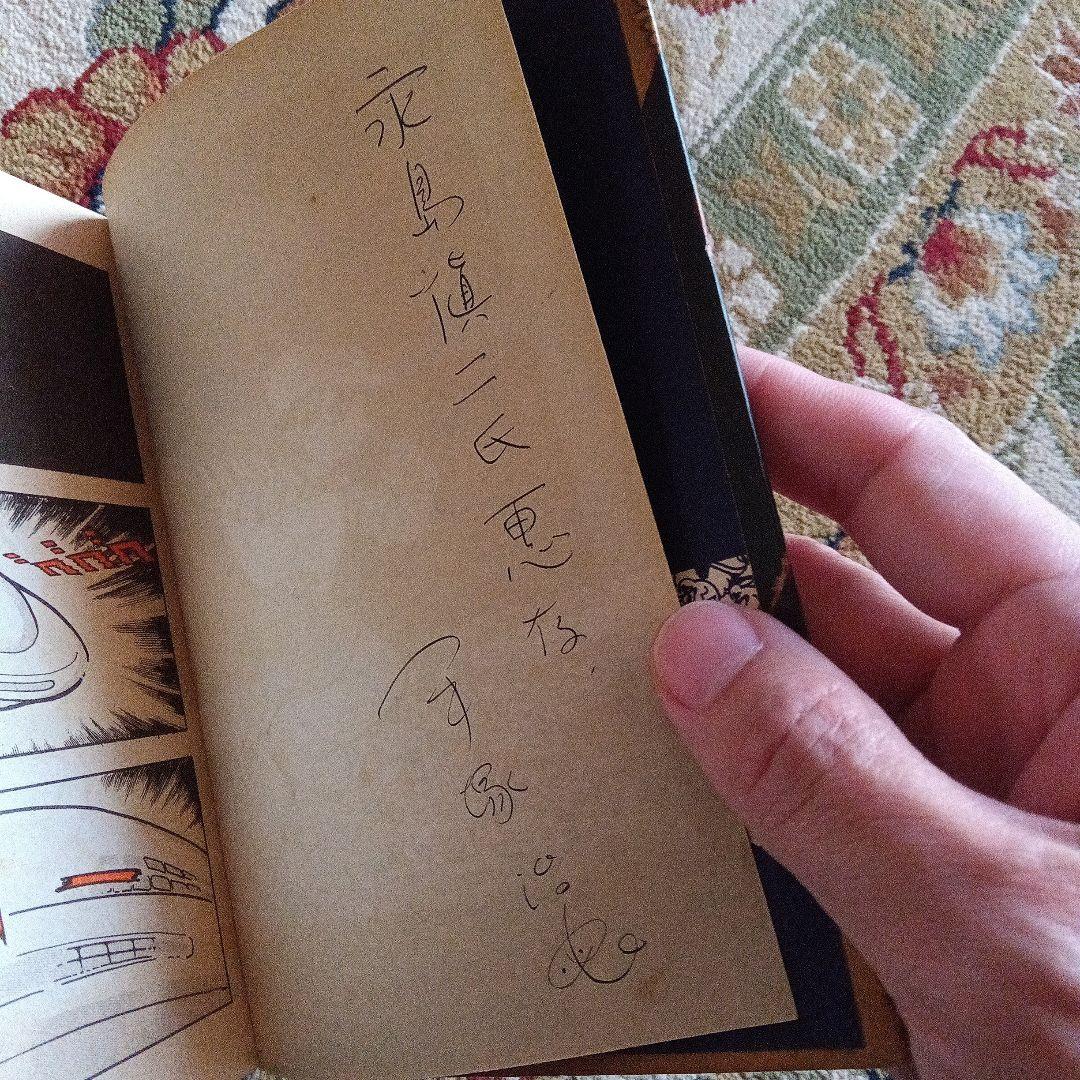 永島慎二氏
恵存
手塚治虫